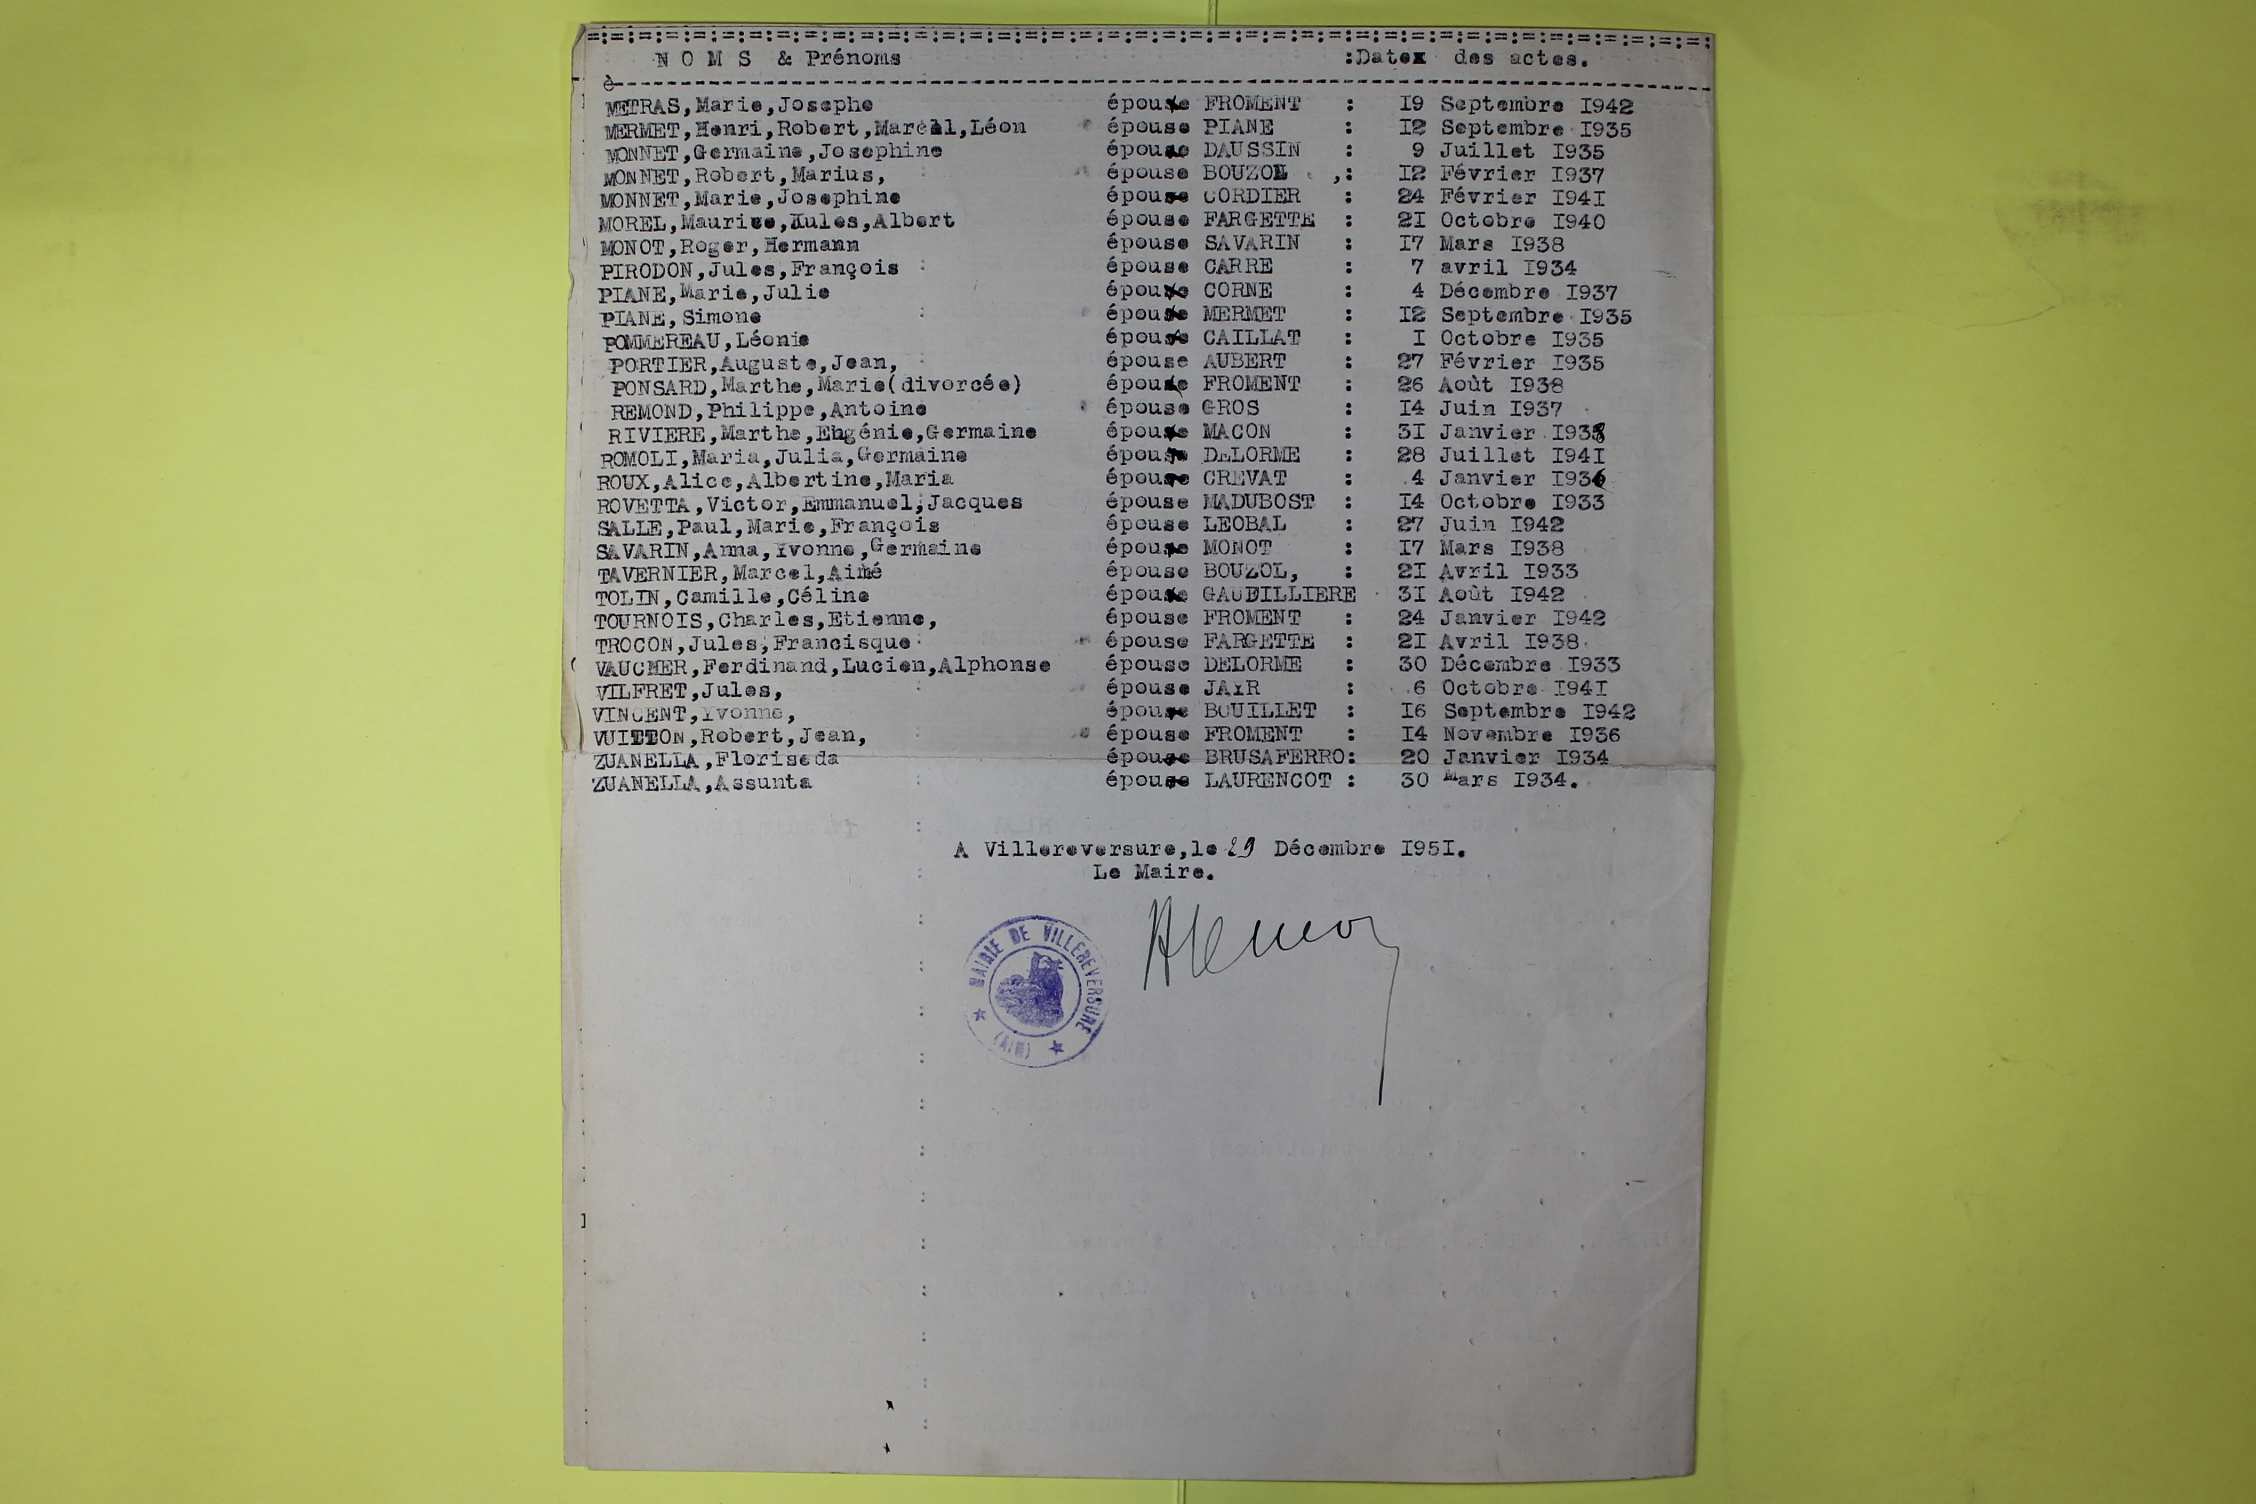 N O M S & Prénoms :Datex des actes.
METRAS,Marie,Josephe épouse FROMENT : I9 Septembre I942
MERMET,Henri,Robert,Marcel,Léon épouse PIANE : I2 Septembre I935
MONNET,Germaine,Josephine épouse DAUSSIN : 9 Juillet I935
MONNET,Robert,Marius, épouse BOUZOL ,: I2 Février I937
MONNET,Marie,Josephine épouse CORDIER : 24 Février I94I
MOREL,Maurice,Jules,Albert épouse FARGETTE : 2I Octobre I940
MONOT,Roger,Hermann épouse SAVARIN : I7 Mars I938
PIRODON,Jules,François épouse CARRE : 7 avril I934
PIANE,Marie,Julie épouse CORNE : 4 Décembre I937
PIANE,Simone épouse MERMET : I2 Septembre I935
POMMEREAU,Léonie épouse CAILLAT : I Octobre I935
PORTIER,Auguste,Jean, épouse AUBERT : 27 Février I935
PONSARD,Marthe,Marie(divorcée) épouse FROMENT : 26 Août I938
REMOND,Philippe,Antoine épouse GROS : I4 Juin I937
RIVIERE,Marthe,Eugénie,Germaine épouse MACON : 3I Janvier I938
ROMOLI,Maria,Julia,Germaine épouse DELORME : 28 Juillet I94I
ROUX,Alice,Albertine,Maria épouse CREVAT : 4 Janvier I936
ROVETTA,Victor,Emmanuel,Jacques épouse MADUBOST : I4 Octobre I933
SALLE,Paul,Marie,François épouse LEOBAL : 27 Juin I942
SAVARIN,Anna,Yvonne,Germaine épouse MONOT : I7 Mars I938
TAVERNIER,Marcel,Aimé épouse BOUZOL, : 2I Avril I933
TOLIN,Camille,Céline épouse GAUDILLIERE 3I Août I942
TOURNOIS,Charles,Etienne, épouse FROMENT : 24 Janvier I942
TROCON,Jules,Francisque épouse FARGETTE : 2I Avril I938
VAUCHER,Ferdinand,Lucien,Alphonse épouse DELORME : 30 Décembre I933
VILFRET,Jules, épouse JAYR : 6 Octobre I94I
VINCENT,Yvonne, épouse BOUILLET : I6 Septembre I942
VUITTON,Robert,Jean, épouse FROMENT : I4 Novembre I936
ZUANELLA,Floriseda épouse BRUSAFERRO: 20 Janvier I934
ZUANELLA,Assunta épouse LAURENCOT : 30 Mars I934.
A Villereversure,le 29 Décembre I95I.
Le Maire.
MAIRIE DE VILLEREVERSURE
(AIN)